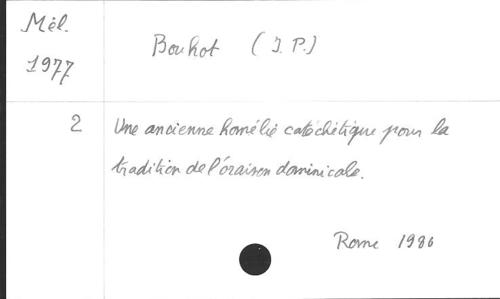 Mél.
1977
Bouhot (J. P.)
2
Une ancienne homélie catéchétique pour la
tradition de l'oraison dominicale.
Rome 1980